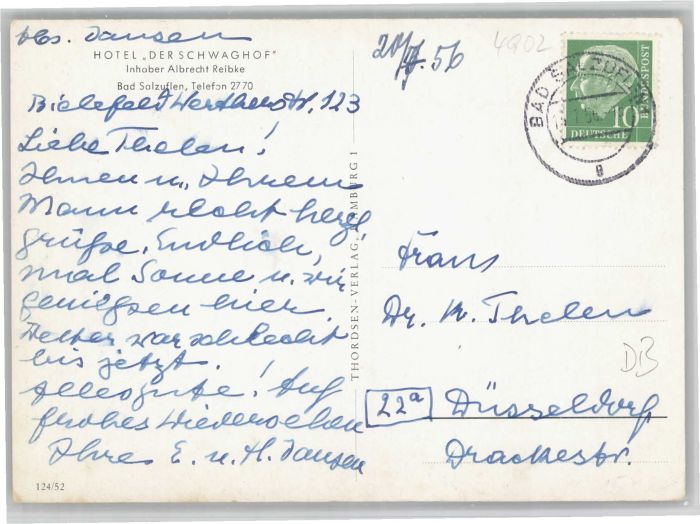 Abs. Jansen
HOTEL „DER SCHWAGHOF"
Inhaber Albrecht Reibke
Bad Salzuflen, Telefon 2770
Bielefeld Str. 123
Liebe Thelen!
Ihnen u. Ihrem
Mann recht herzl.
grüße. Endlich
mal Sonne u. wir
genießen hier.
Wetter war schlecht
bis jetzt.
Alles gute! Auf
frohes Wiedersehen
Ihre E. u. H. Jansen
124/52
THORDSEN-VERLAG, HAMBURG 1
4902
BAD SALZUFLEN
g
10
DEUTSCHE
BUNDESPOST
Frau
Dr. K. Thelen
DB
22a Düsseldorf
Drakestr.